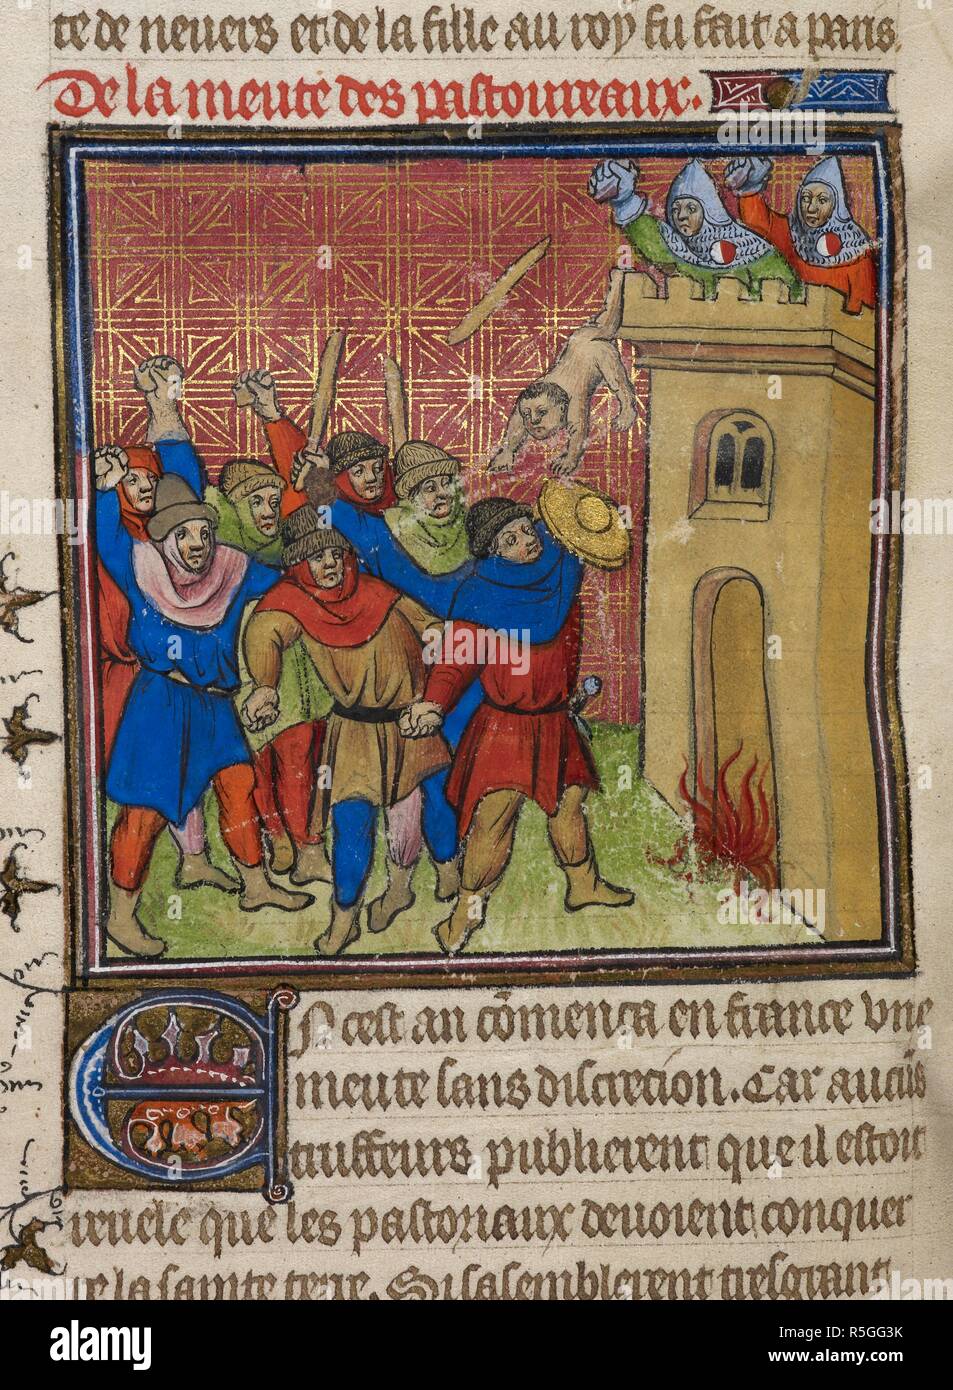 te de neuers et de la fille au roy fu fait a paris.
De la meute des pastoureaux.
En cest an cōmenca en france vne
meute sans discrecion. Car aucūs
truffeurs publierent que il estoit
reuele que les pastoriaux deuoient conquer
re la sainte terre. Si sasemblerent tresgrant
alamy
Image ID: R5GG3K
www.alamy.com